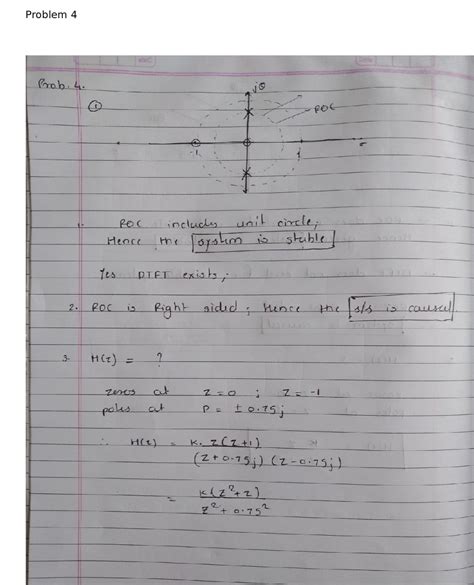 Problem 4
Prob. 4.
①
ROC
-1
1
1. ROC includes unit circle;
Hence the system is stable
Yes DTFT exists;
2. ROC is Right sided; Hence the s/s is causal.
3. H(z) = ?
zeros at z=0 ; z=-1
poles at P = ± 0.75j
∴ H(z) = K. z(z+1)
(z+0.75j) (z-0.75j)
= K(z²+z)
z² + 0.75²